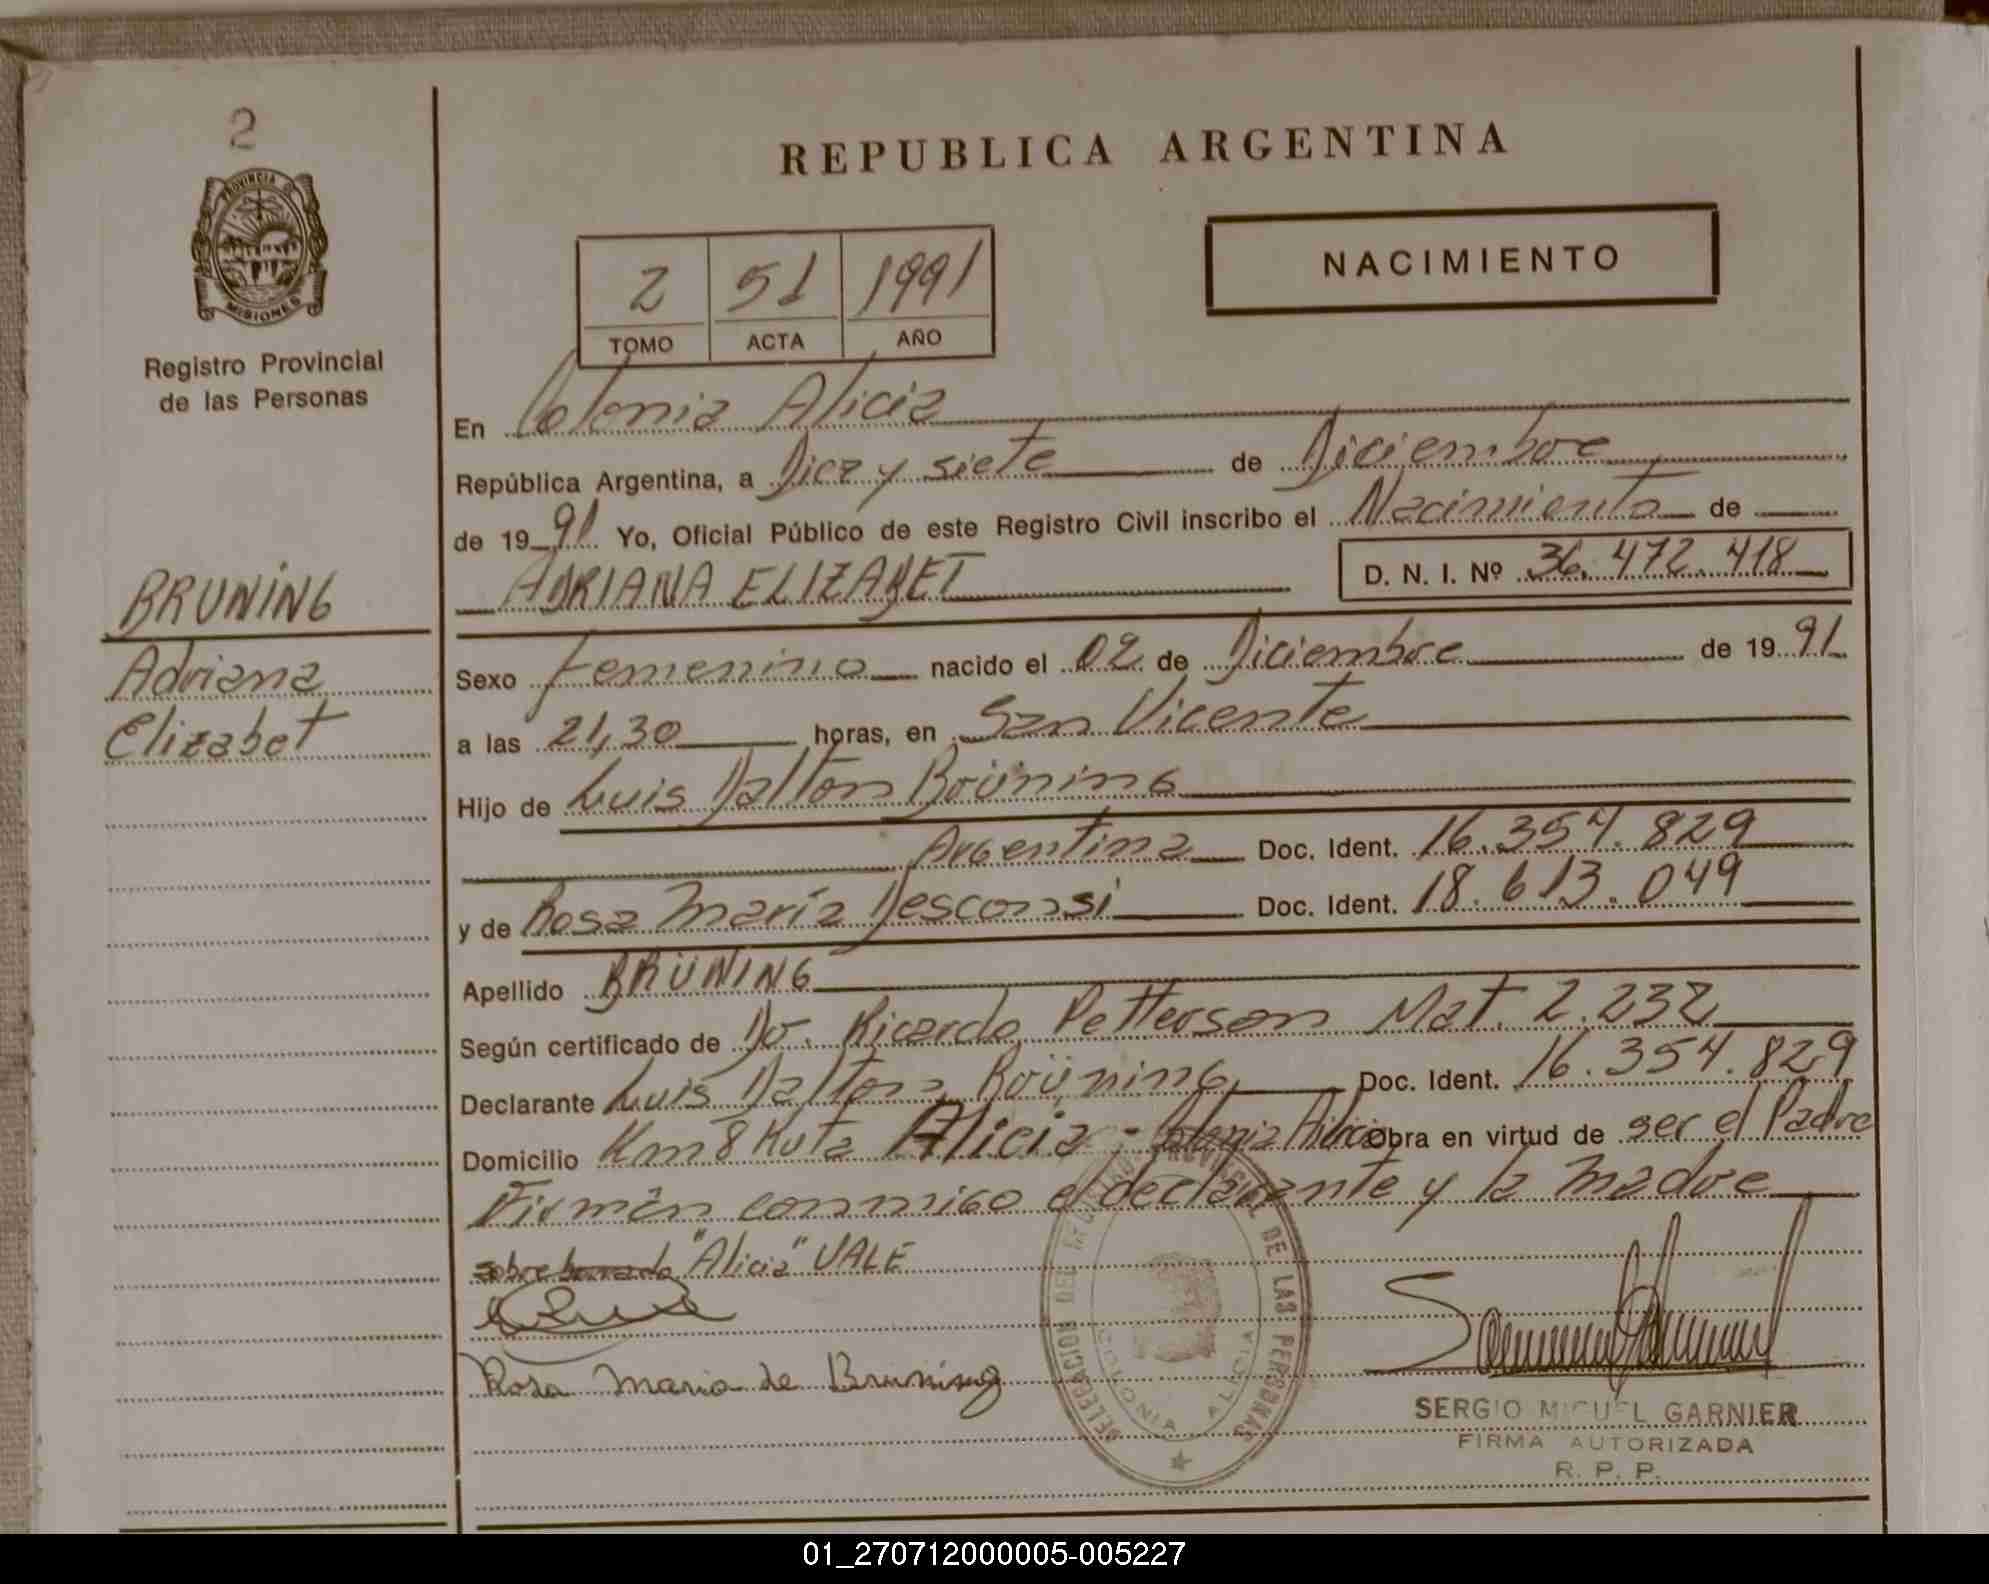 2
PROVINCIA DE
MISIONES
Registro Provincial
de las Personas
BRUNING
Adriana
Elizabet
REPUBLICA ARGENTINA
2 51 1991
TOMO ACTA AÑO
NACIMIENTO
En Colonia Alicia
República Argentina, a Diez y siete de Diciembre
de 1991 Yo, Oficial Público de este Registro Civil inscribo el Nacimiento de
ADRIANA ELIZABET D. N. I. Nº 36.472.418
Sexo Femenino nacido el 02 de Diciembre de 1991
a las 21,30 horas, en San Vicente
Hijo de Luis Dalton Brüning
Argentina Doc. Ident. 16.354.829
y de Rosa María Desconsi Doc. Ident. 18.613.049
Apellido BRÜNING
Según certificado de Dr. Ricardo Petterson Mat. 2.232
Declarante Luis Dalton Brüning Doc. Ident. 16.354.829
Domicilio Km 8 Ruta Alicia - Colonia Alicia Obra en virtud de ser el Padre
Firmán conmigo el declarante y la Madre
sobre borrado "Alicia" VALE
Rosa Maria de Bruning
DELEGACION DEL REGISTRO PROVINCIAL DE LAS PERSONAS
COLONIA ALICIA
SERGIO MIGUEL GARNIER
FIRMA AUTORIZADA
R. P. P.
01_270712000005-005227